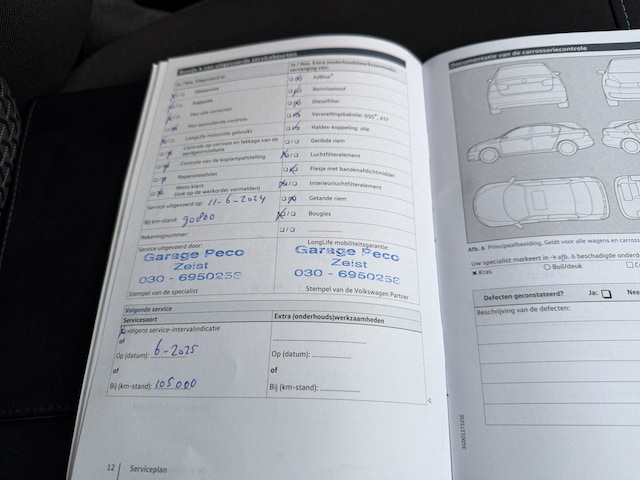 Bewijs 6 Van uitgevoerde servicebeurten
Ja / Nee, Uitgevoerd is:
Olieservice
Inspectie
Van olie verversen
Van aanvullende controle
LongLife motorolie gebruikt
Controle op corrosie en lekkage van de
Controle van de koplampafstelling
Reparatieadvies
Wens klant
(ook op de werkorder vermelden)
Service uitgevoerd op: 11-6-2024
Bij km-stand: 90800
Rekeningnummer:
Service uitgevoerd door:
Garage Peco
Zeist
030 - 6950258
Stempel van de specialist
Ja / Nee, Extra (onderhouds)werkzaamheden,
vervanging van:
AdBlue®
Remvloeistof
Dieselfilter
Versnellingsbakolie: DSG®, ATF
Haldex-koppeling: olie
Geribde riem
Luchtfilterelement
Flesje met bandenafdichtmiddel
Interieurluchtfilterelement
Getande riem
Bougies
LongLife mobiliteitsgarantie:
Garage Peco
Zeist
030 - 6950258
Stempel van de Volkswagen Partner
Volgende service
Servicesoort
volgens service-intervalindicatie
of
Op (datum): 6-2025
of
Bij (km-stand): 105000
Extra (onderhouds)werkzaamheden
Op (datum):
of
Bij (km-stand):
12 | Serviceplan
Documentatie van de carrosseriecontrole
Afb. 6 Principeafbeelding. Geldt voor alle wagens en carross
Uw specialist markeert in → afb. 6 beschadigde onderd
× Kras
○ Buil/deuk
Defecten geconstateerd?
Ja:
Nee
Beschrijving van de defecten: